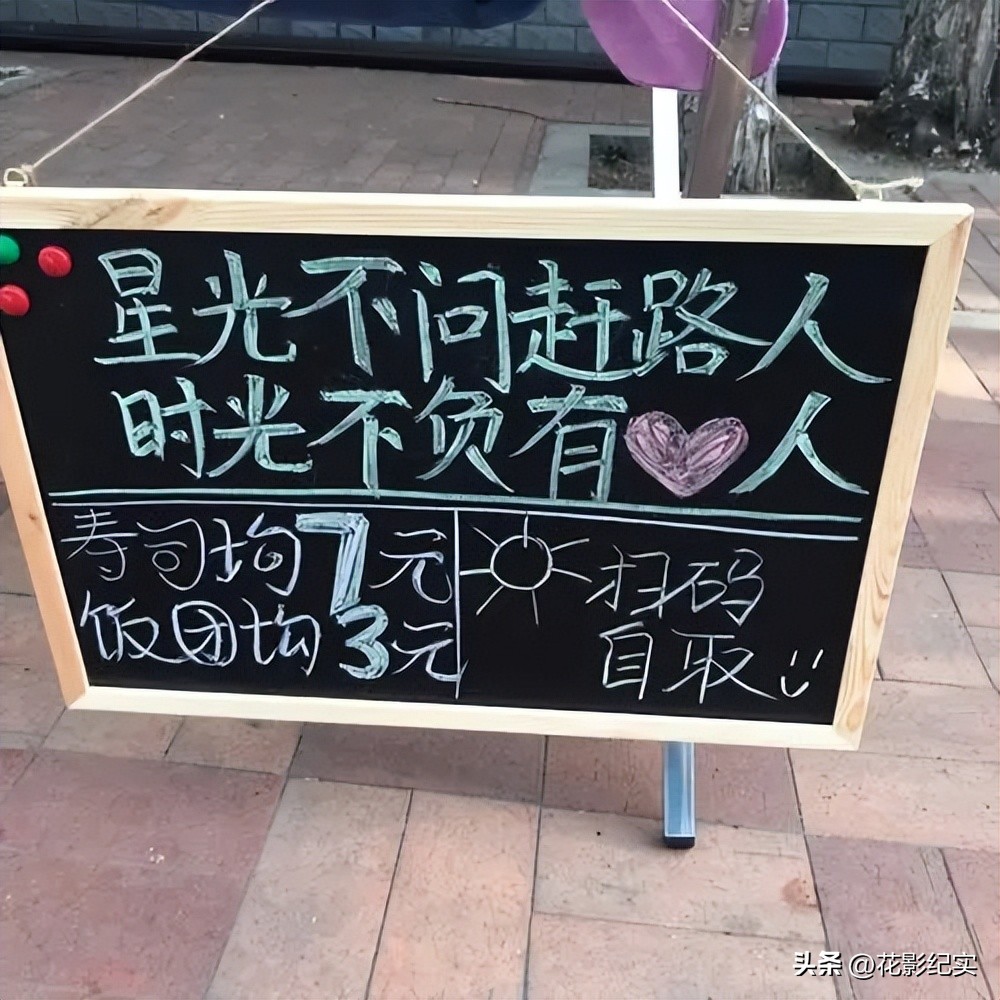 星光不问赶路人
时光不负有人
寿司均7元
饭团均3元
扫码
自取
头条 @花影纪实